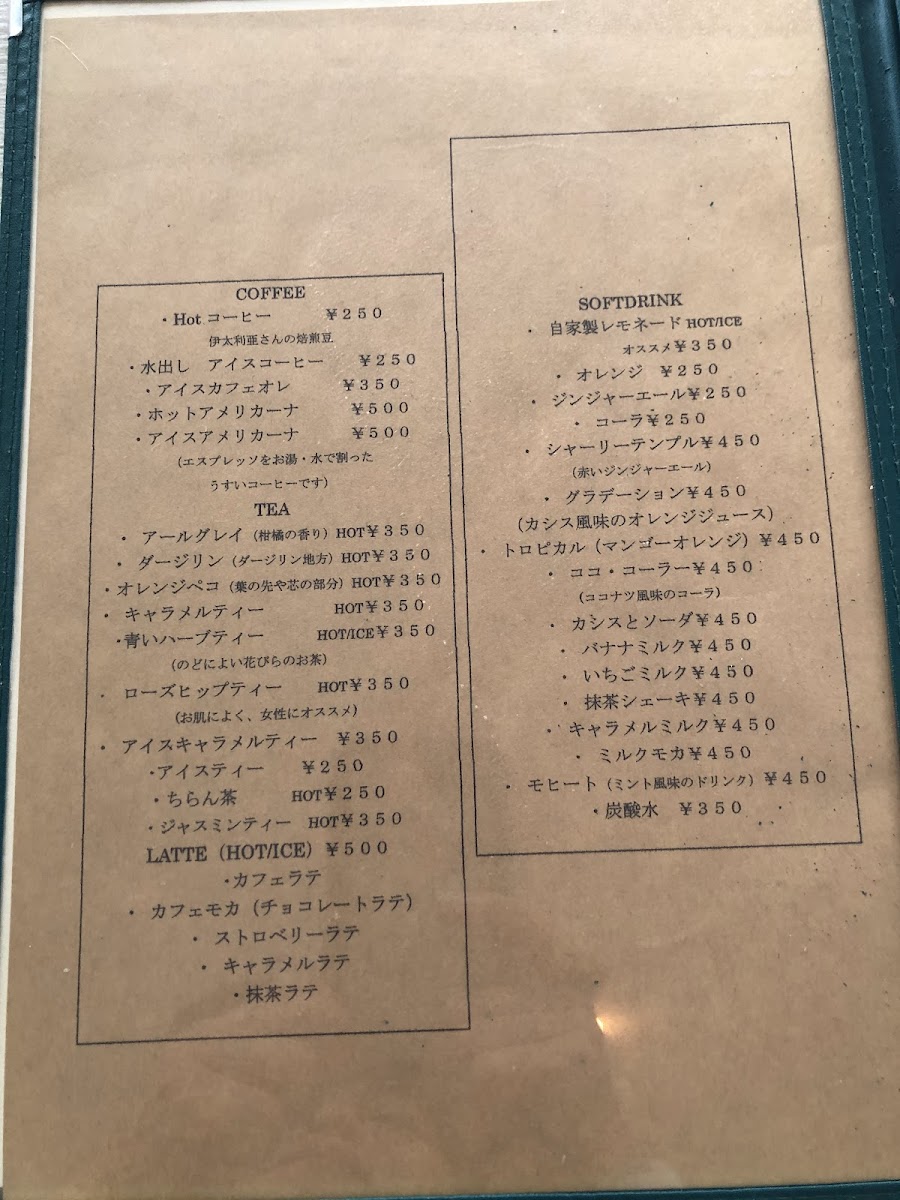 COFFEE
・Hot コーヒー ￥250
伊太利亜さんの焙煎豆
・水出し アイスコーヒー ￥250
・アイスカフェオレ ￥350
・ホットアメリカーナ ￥500
・アイスアメリカーナ ￥500
（エスプレッソをお湯・水で割った
うすいコーヒーです）
TEA
・ アールグレイ（柑橘の香り）HOT￥350
・ ダージリン（ダージリン地方）HOT￥350
・オレンジペコ（葉の先や芯の部分）HOT￥350
・ キャラメルティー HOT￥350
・青いハーブティー HOT/ICE￥350
（のどによい花びらのお茶）
・ ローズヒップティー HOT￥350
（お肌によく、女性にオススメ）
・ アイスキャラメルティー ￥350
・アイスティー ￥250
・ちらん茶 HOT￥250
・ジャスミンティー HOT￥350
LATTE（HOT/ICE）￥500
・カフェラテ
・ カフェモカ（チョコレートラテ）
・ ストロベリーラテ
・ キャラメルラテ
・抹茶ラテ
SOFTDRINK
・ 自家製レモネード HOT/ICE
オススメ￥350
・ オレンジ ￥250
・ ジンジャーエール￥250
・ コーラ￥250
・ シャーリーテンプル￥450
（赤いジンジャーエール）
・ グラデーション￥450
（カシス風味のオレンジジュース）
・ トロピカル（マンゴーオレンジ）￥450
・ ココ・コーラー￥450
（ココナツ風味のコーラ）
・ カシスとソーダ￥450
・ バナナミルク￥450
・ いちごミルク￥450
・ 抹茶シェーキ￥450
・ キャラメルミルク￥450
・ ミルクモカ￥450
・ モヒート（ミント風味のドリンク）￥450
・炭酸水 ￥350